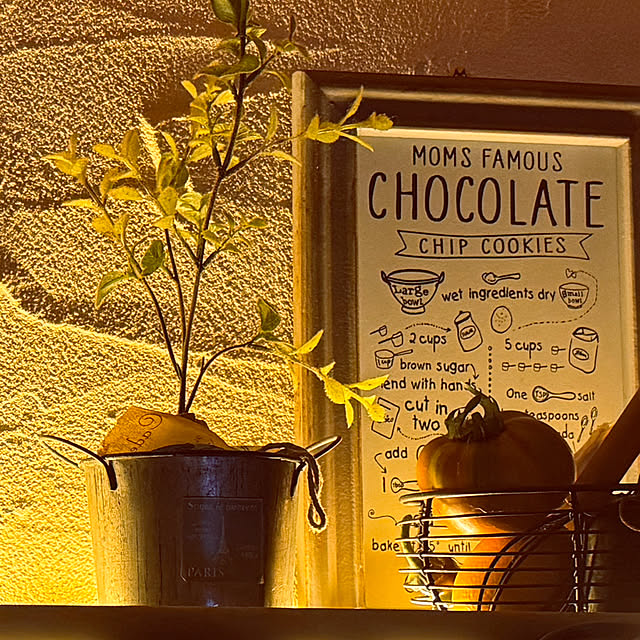 MOMS FAMOUS
CHOCOLATE
CHIP COOKIES
Large bowl
wet ingredients dry
small bowl
2 cups
5 cups
brown sugar
end with han
One
salt
cut in
two
teaspoons
da
add
1
bake
until
PARIS